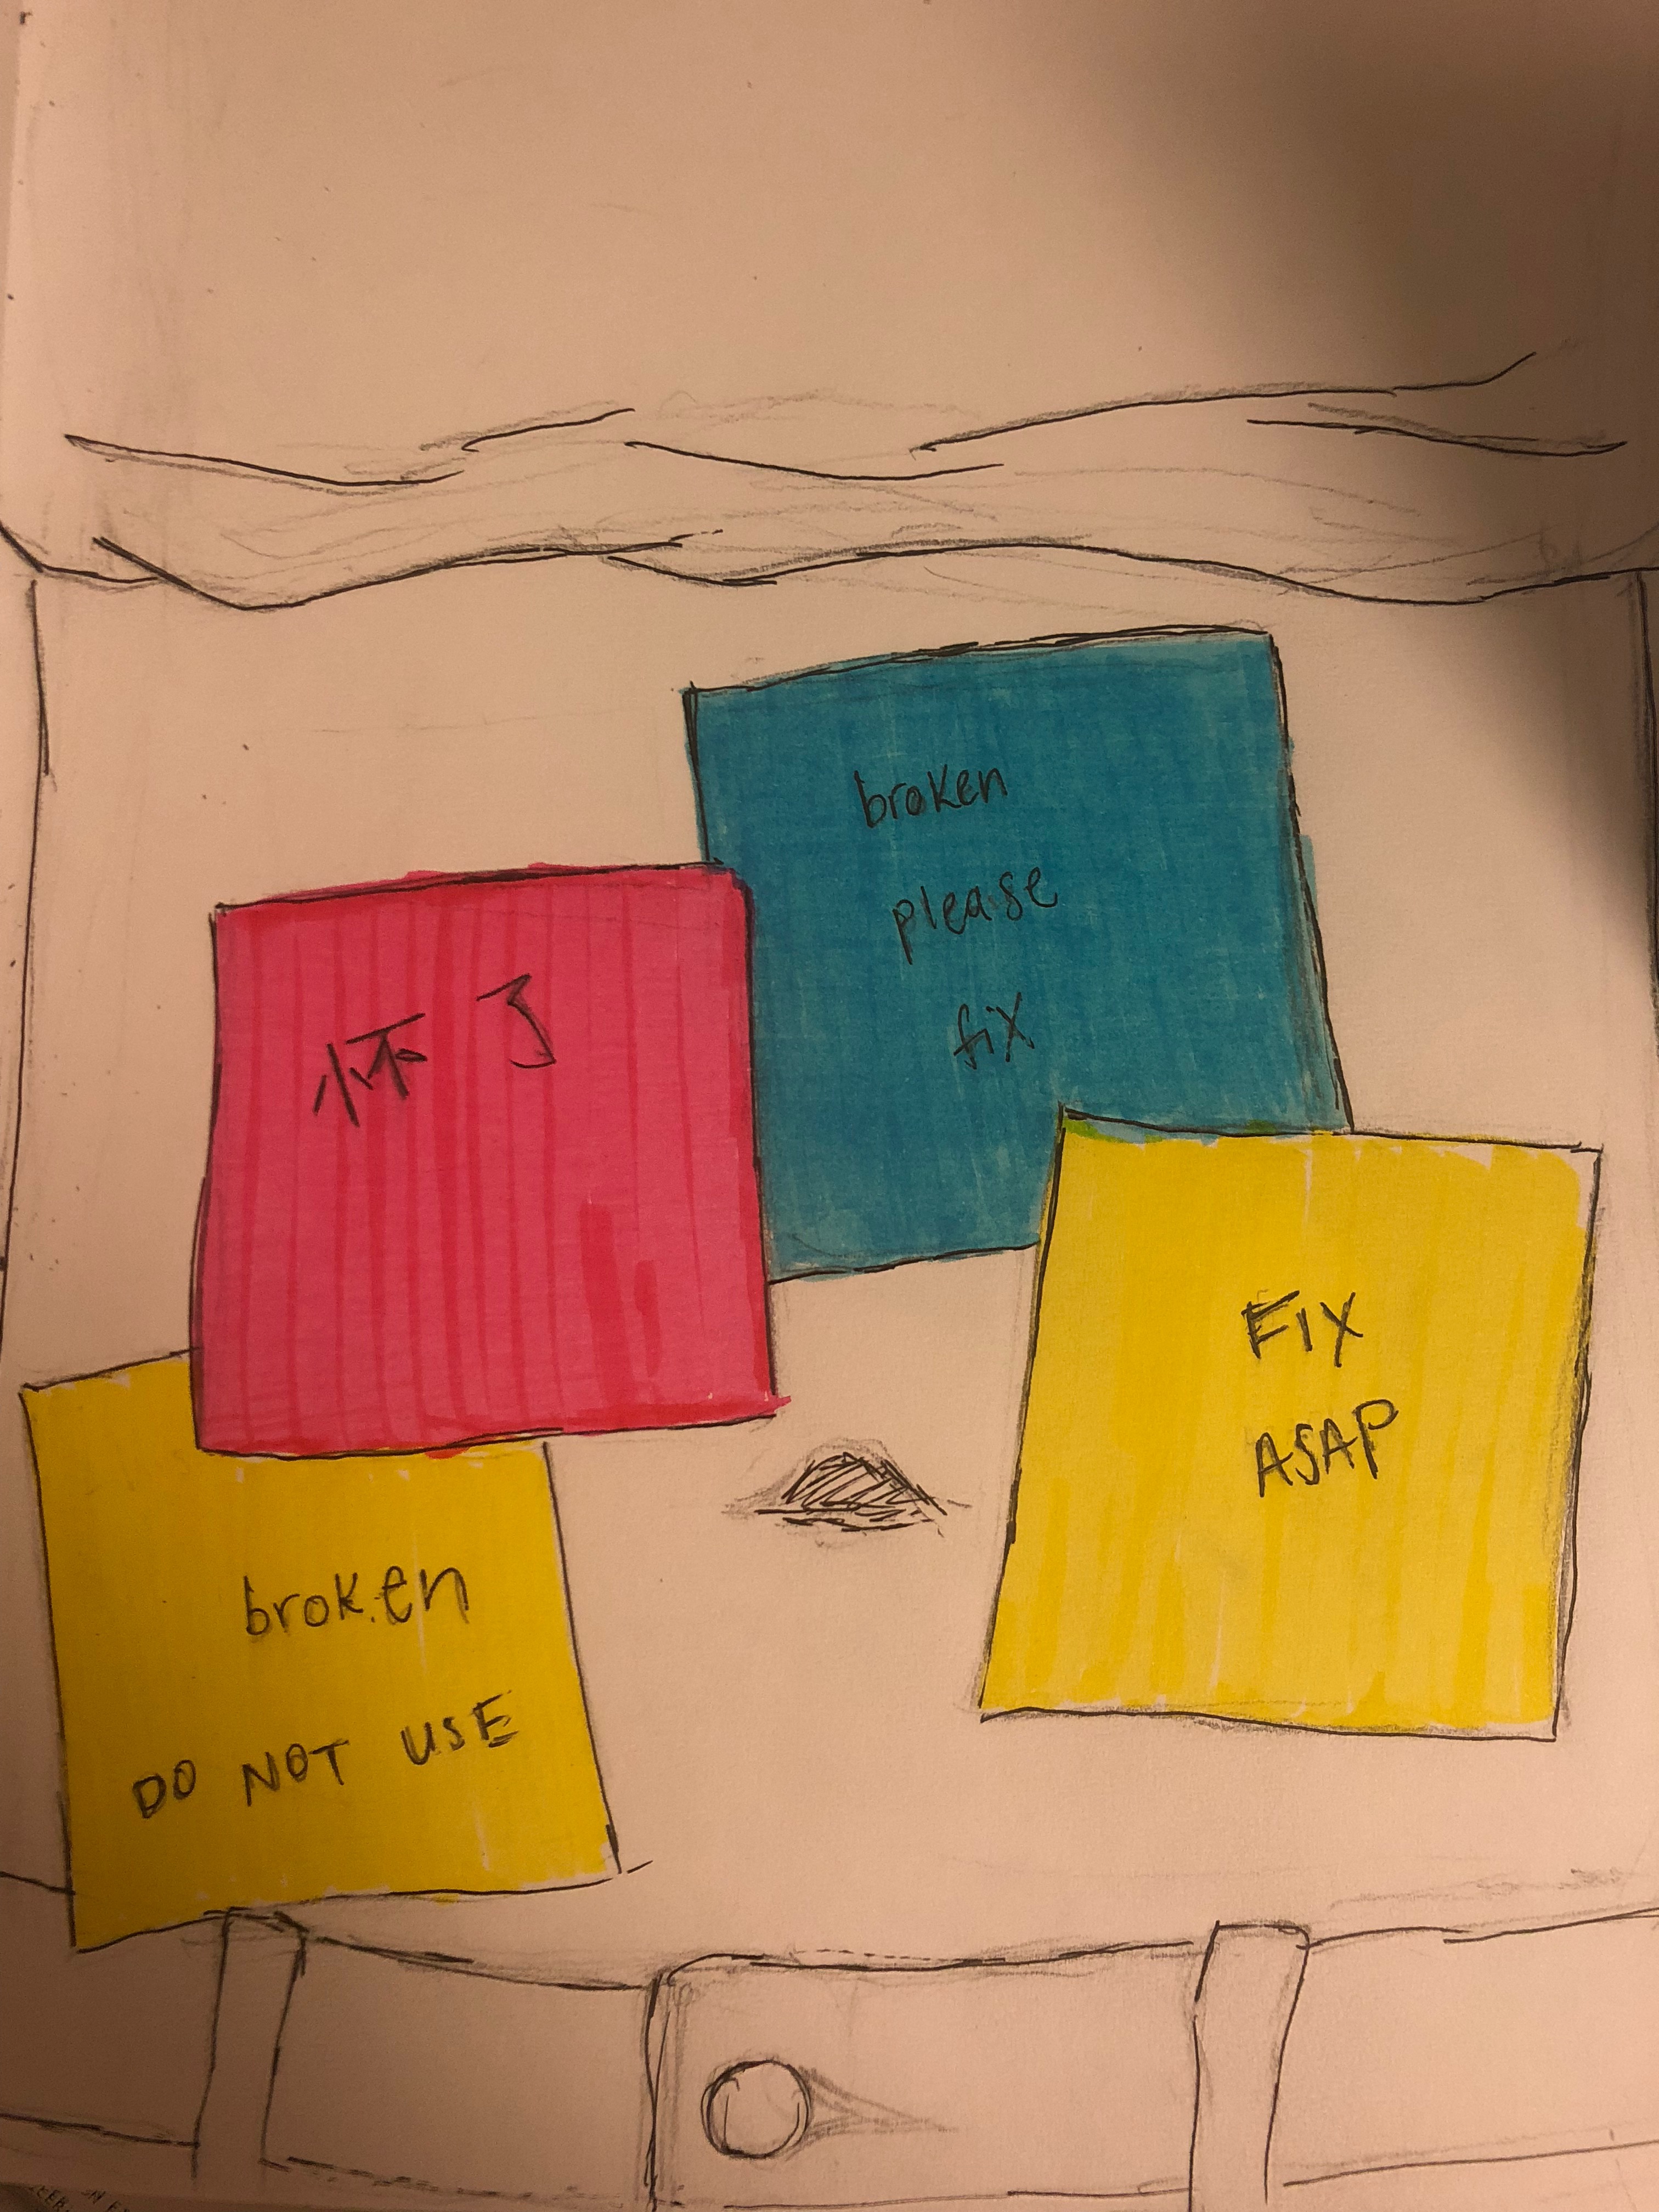 broken
please
fix
怀了
FIX
ASAP
broken
DO NOT USE